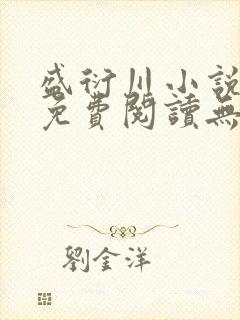 盛衍川小說
免費閱讀無
劉金洋